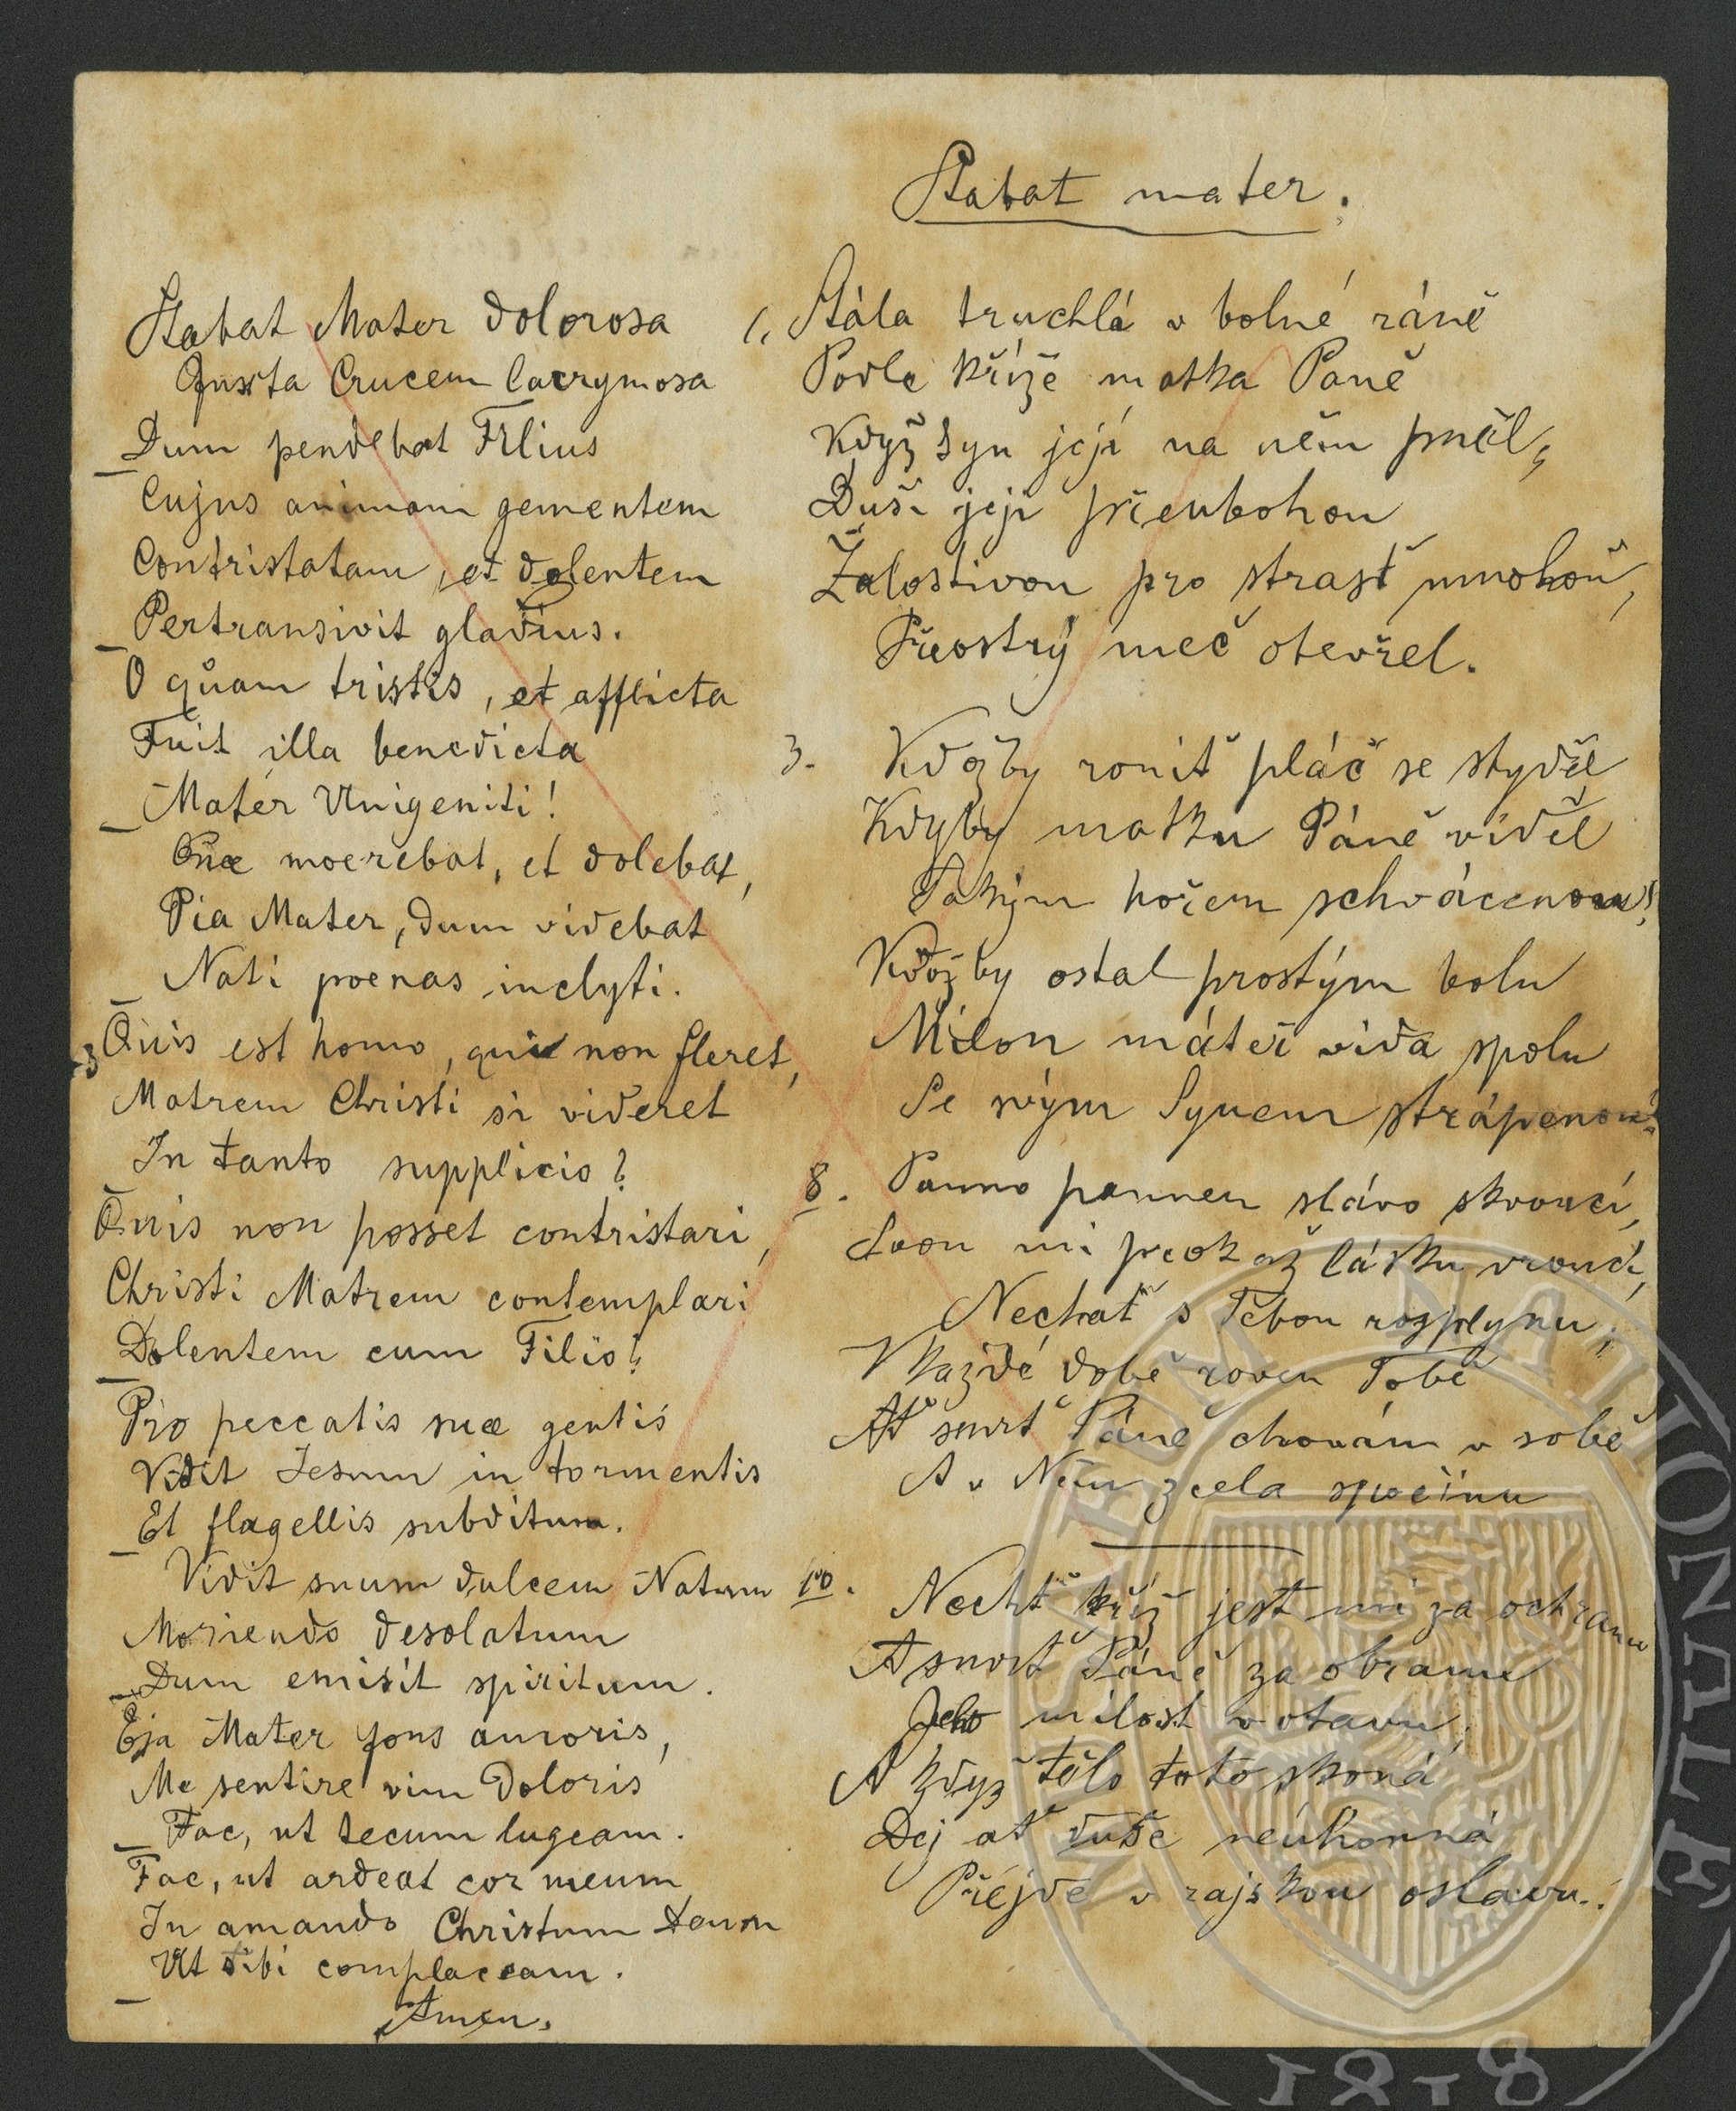 Stabat mater.
Stabat Mater dolorosa
Juxta Crucem lacrymosa
Dum pendebat Filius
Cujus animam gementem
Contristatam, et dolentem
Pertransivit gladius.
O quam tristis, et afflicta
Fuit illa benedicta
Mater Unigeniti!
Quae moerebat, et dolebat,
Pia Mater, dum videbat
Nati poenas inclyti.
3 Quis est homo, qui non fleret,
Matrem Christi si videret
In tanto supplicio?
Quis non posset contristari,
Christi Matrem contemplari
Dolentem cum Filio?
Pro peccatis suae gentis
Vidit Jesum in tormentis
Et flagellis subditum.
Vidit suum dulcem Natum
Moriendo desolatum
Dum emisit spiritum.
Eja Mater fons amoris,
Me sentire vim doloris
Fac, ut tecum lugeam.
Fac, ut ardeat cor meum
In amando Christum Deum
Ut tibi complaceam.
Amen.
1. Stála truchlá v bolné ráně
Podle kříže matka Páně
Když Syn její na něm pněl,
Duši její přeubohou
Žalostivou pro strasť mnohou,
Přeostrý meč otevřel.
3. Kdožby roniť pláč se styděl
Kdyby matku Páně viděl
Takým hořem schvácenou!
Kdožby ostal prostým bolu
Milou máteř vida spolu
Se svým Synem strápenou.
8. Panno pannen slávo skvoucí,
Svou mi prokaž lásku vroucí,
Nechať s Tebou rozplynu;
V každé době roven Tobě
Ať smrť Páně chovám v sobě
A v Něm zcela spočinu
10. Nechť kříž jest mi za ochranu
A smrť Páně za obranu
Jeho milost v otavu;
A když tělo toto skoná
Dej ať duše neúhonná
Přejde v rajskou oslavu.
MUSEUM NATIONALE
1818